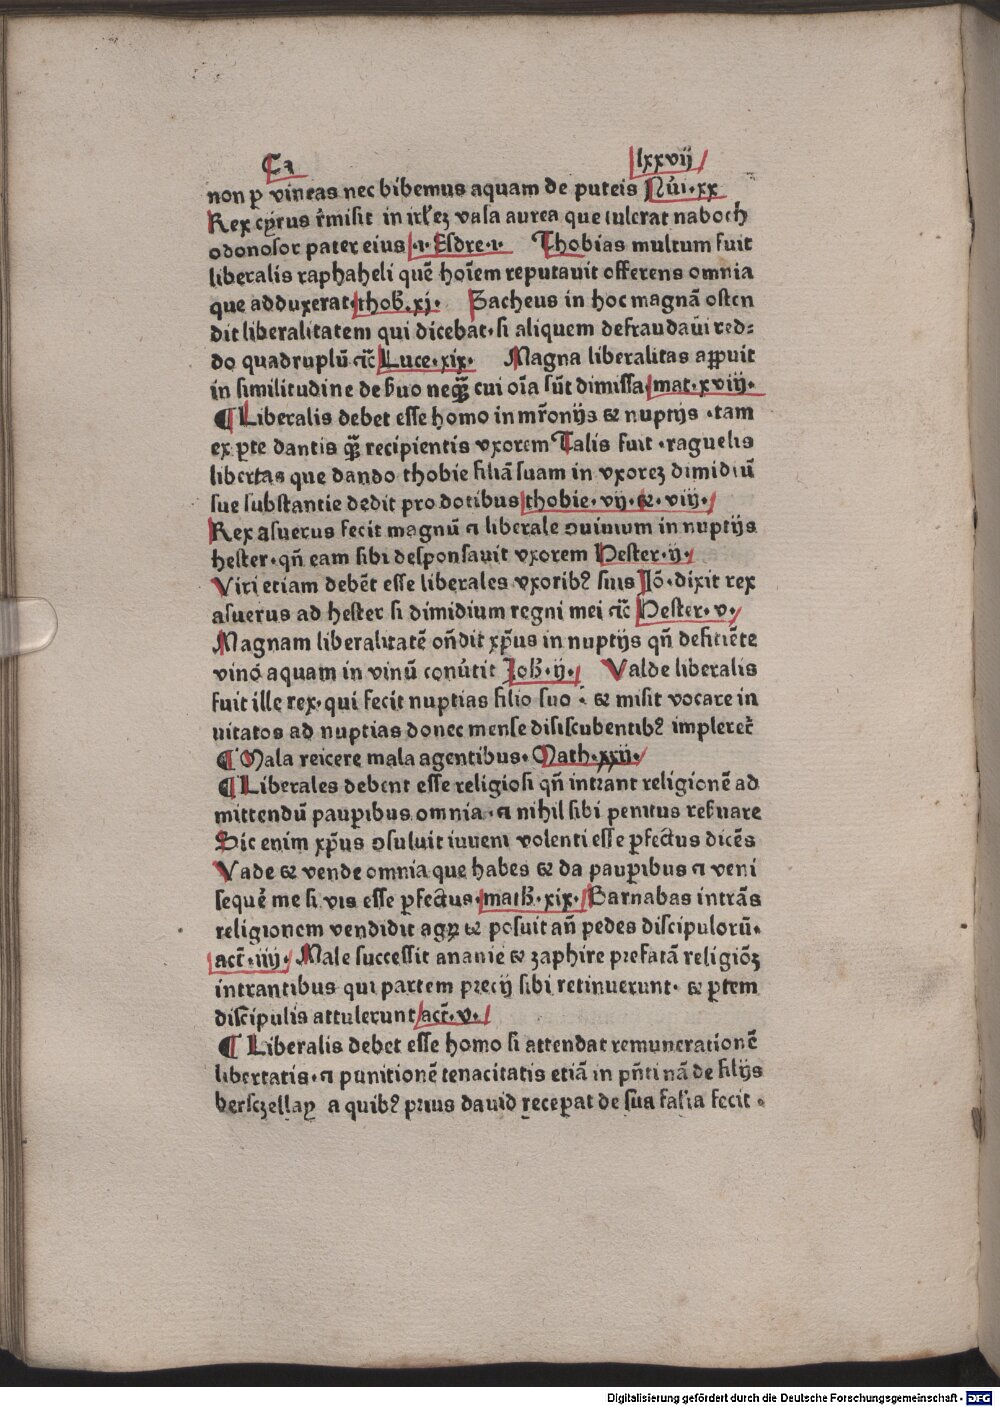 Ca lxxvij
non ꝑ vineas nec bibemus aquam de puteis Nūi·xx
Rex cyrus r̄misit in irl̄ez vasa aurea que tulerat naboch
odonosor pater eius·i· Esdre·i· Thobias multum fuit
liberalis raphaheli quē hoīem reputauit offerens omnia
que adduxerat·thob̄.xj. Zacheus in hoc magnā osten
dit liberalitatem qui dicebat·si aliquem defraudaui red⸗
do quadruplū ⁊c̄ Luce·xix· Magna liberalitas aꝑpuit
in similitudine de ẜuo neqꝫ̄ cui oīa sūt dimissa·mat·xviij·
¶ Liberalis debet esse homo in mr̄onijs ⁊ nuptijs ·tam
ex ꝑte dantis qꝫ̄ recipientis vxorem Talis fuit ·raguelis
libertas que dando thobie filiā suam in vxorez dimidiū
sue substantie dedit pro dotibus thobie·vij·⁊·viij·
Rex asuerus fecit magnū ⁊ liberale ↄuiuium in nuptijs
hester·qn̄ eam sibi desponsauit vxorem Hester·ij·
Viri etiam debēt esse liberales vxoribꝰ suis Iō·dixit rex
asuerus ad hester si dimidium regni mei ⁊c̄ Hester·v·
Magnam liberalitatē on̄dit xp̄us in nuptijs qn̄ deficiēte
vino aquam in vinū conūtit Joh̄·ij· Valde liberalis
fuit ille rex·qui fecit nuptias filio suo · ⁊ misit vocare in
uitatos ad nuptias donec mense disiscubentibꝰ impleret̄
¶ Mala reicere mala agentibus·Math·xxij·
¶ Liberales debent esse religiosi qn̄ intrant religionē ad
mittendū pauꝑibus omnia·⁊ nihil sibi penitus reẜuare
Sic enim xp̄us ↄsuluit iuueni volenti esse ꝑfectus dicēs
Vade ⁊ vende omnia que habes ⁊ da pauꝑibus ⁊ veni
sequē me si vis esse ꝑfectus·math̄·xix· Barnabas intrās
religionem vendidit agꝝ ⁊ posuit an̄ pedes discipulorū·
act̄·iiij· Male successit ananie ⁊ zaphire prefatā religiōꝫ
intrantibus qui partem precij sibi retinuerunt· ⁊ ꝑtem
discipulis attulerunt act̄·v·
¶ Liberalis debet esse homo si attendat remunerationē
libertatis·⁊ punitionē tenacitatis etiā in pn̄ti nā de filijs
berſczellaꝝ a quibꝰ prius dauid receꝑat de sua fasia fecit·
Digitalisierung gefördert durch die Deutsche Forschungsgemeinschaft - DFG